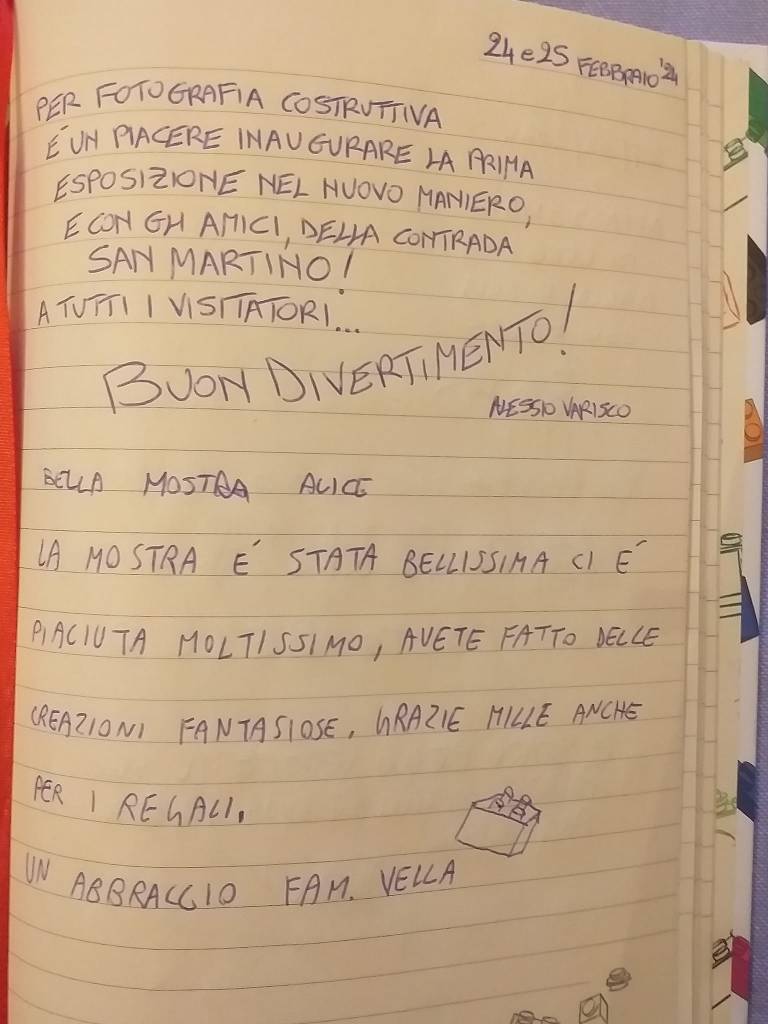 24 e 25 FEBBRAIO '24
PER FOTOGRAFIA COSTRUTTIVA
E' UN PIACERE INAUGURARE LA PRIMA
ESPOSIZIONE NEL NUOVO MANIERO,
E CON GLI AMICI, DELLA CONTRADA
SAN MARTINO!
A TUTTI I VISITATORI...
BUON DIVERTIMENTO!
ALESSIO VARISCO
BELLA MOSTRA ALICE
LA MOSTRA E' STATA BELLISSIMA CI E'
PIACIUTA MOLTISSIMO, AVETE FATTO DELLE
CREAZIONI FANTASIOSE. GRAZIE MILLE ANCHE
PER I REGALI.
UN ABBRACCIO FAM. VELLA